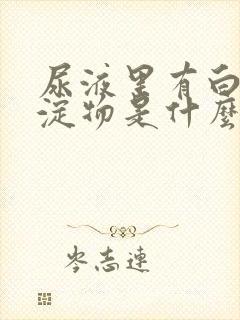 尿液里有白
淀物是什麼
岑志連